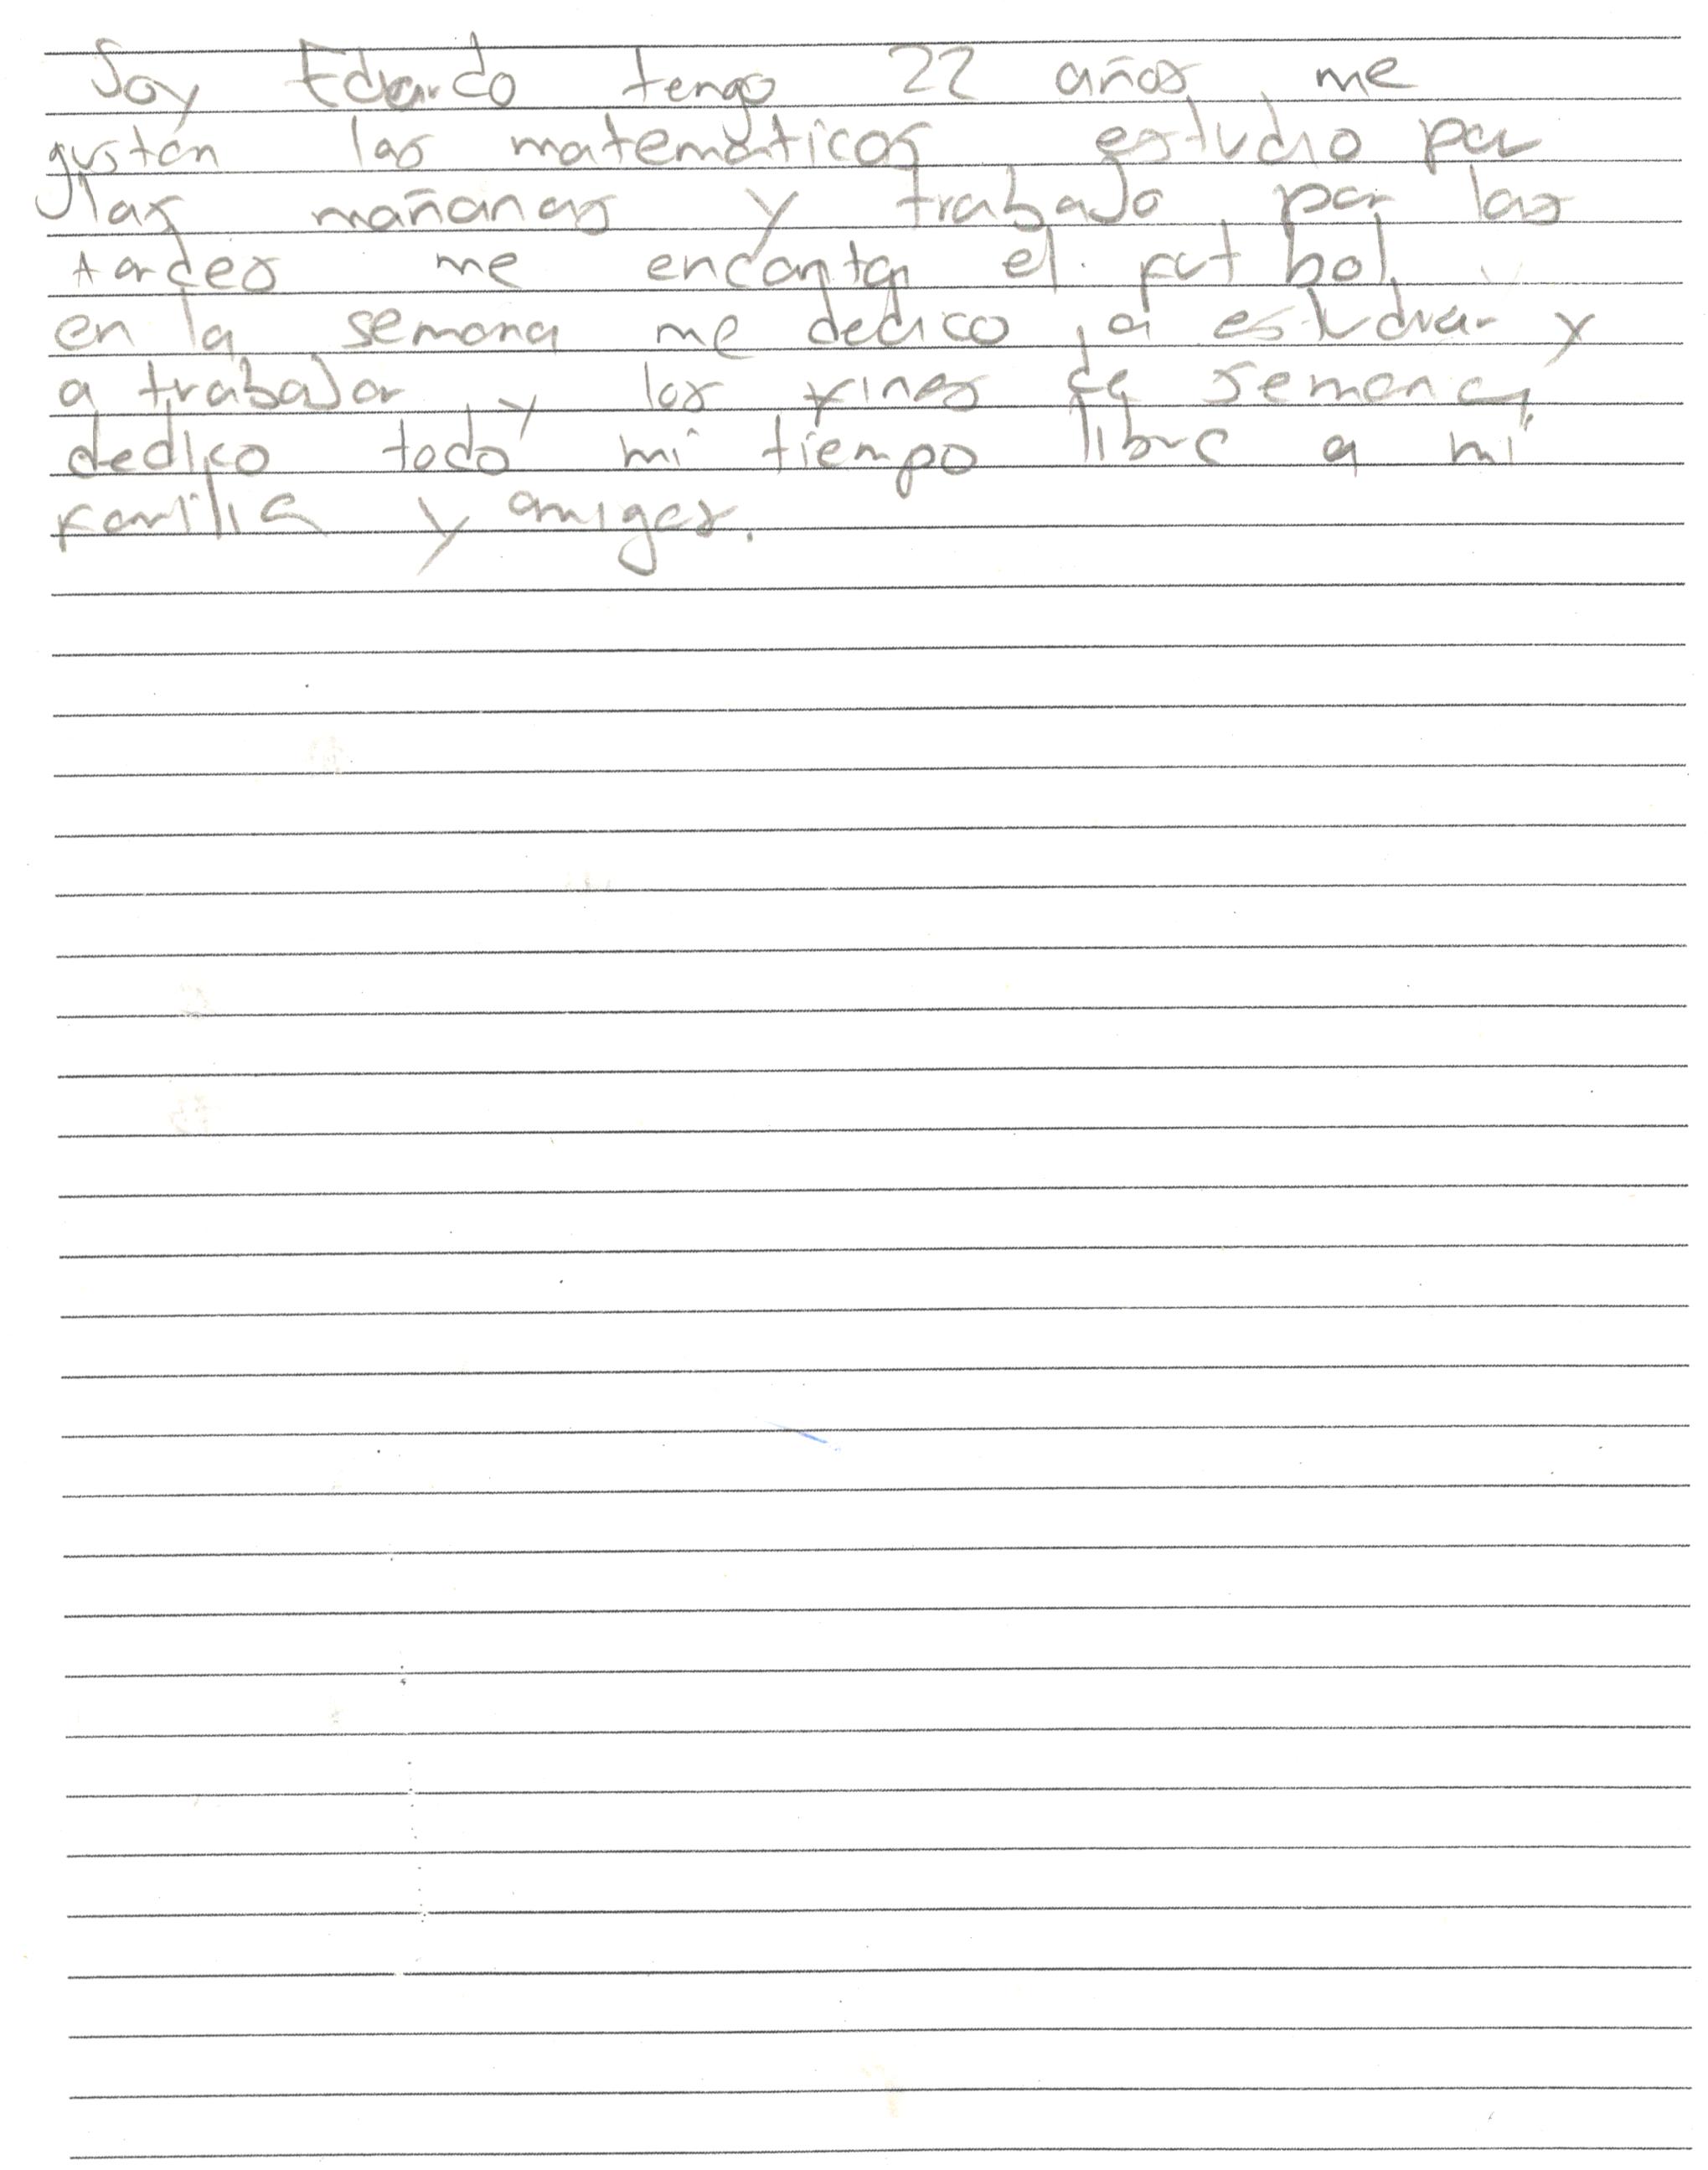 Soy Eduardo tengo 22 años, me
gustan las matemáticas estudio por
las mañanas y trabajo por las
tardes me encanta el fut bol,
en la semana me dedico a estudiar y
a trabajar y los fines de semana
dedico todo mi tiempo libre a mi
familia y amigos.